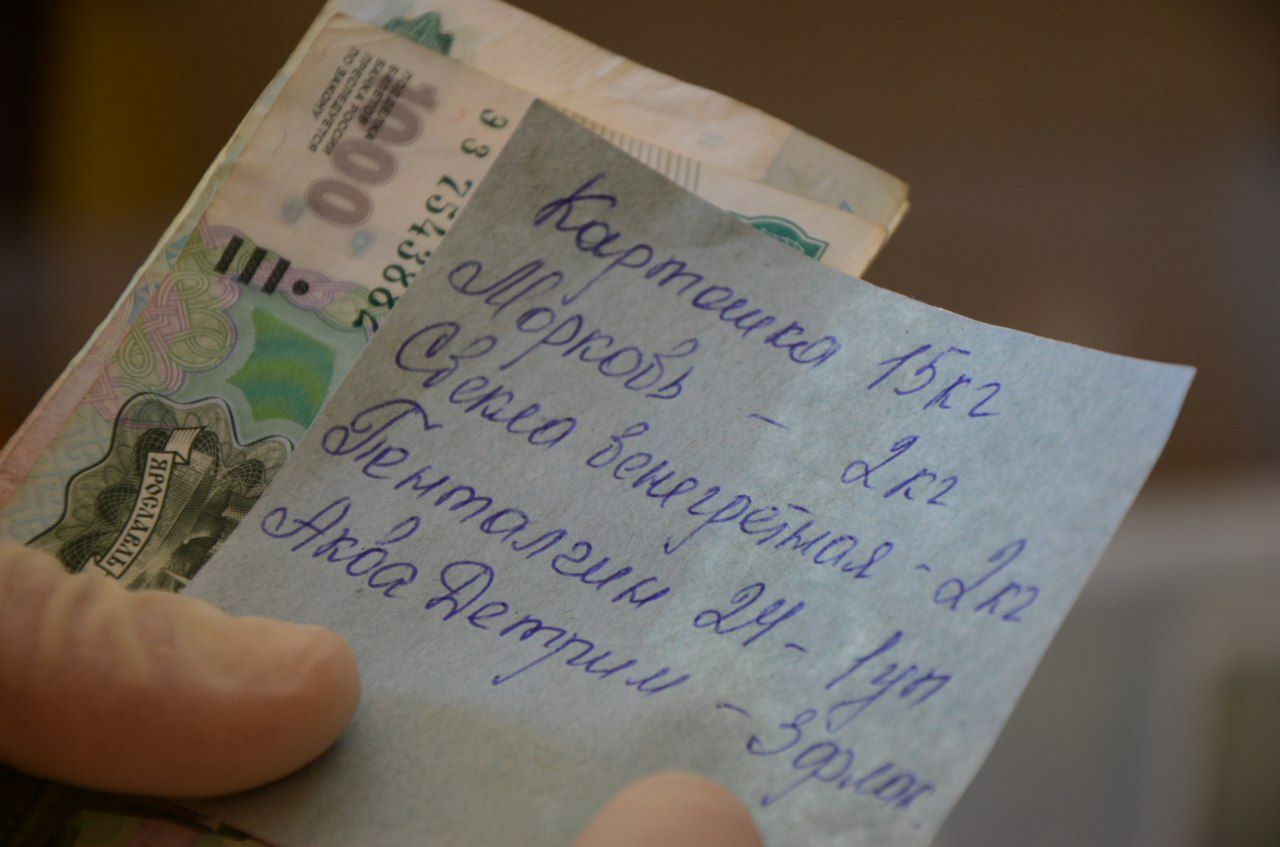 1000
ПОДДЕЛКА
БИЛЕТОВ
БАНКА РОССИИ
ПРЕСЛЕДУЕТСЯ
ПО ЗАКОНУ
ЭЗ 7543884
ЯРОСЛАВЛЬ
Картошка 15кг
Морковь - 2кг
Свекла венегретная - 2кг
Пенталгин 24 - 1уп
Аква Детрим - 3флак.